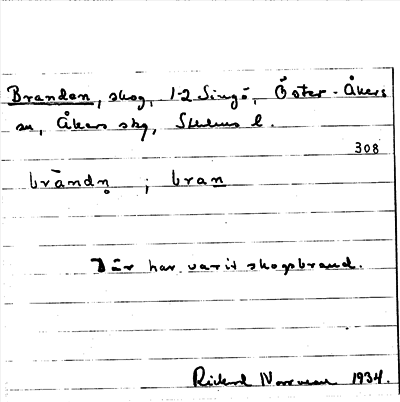 Branden, skog, 1-2 Singö, Öster-Åkers
sn, Åkers skg, Sthlms l.
308
brāndn̥ ; bran
Där har varit skogsbrand.
Rickard 1934.